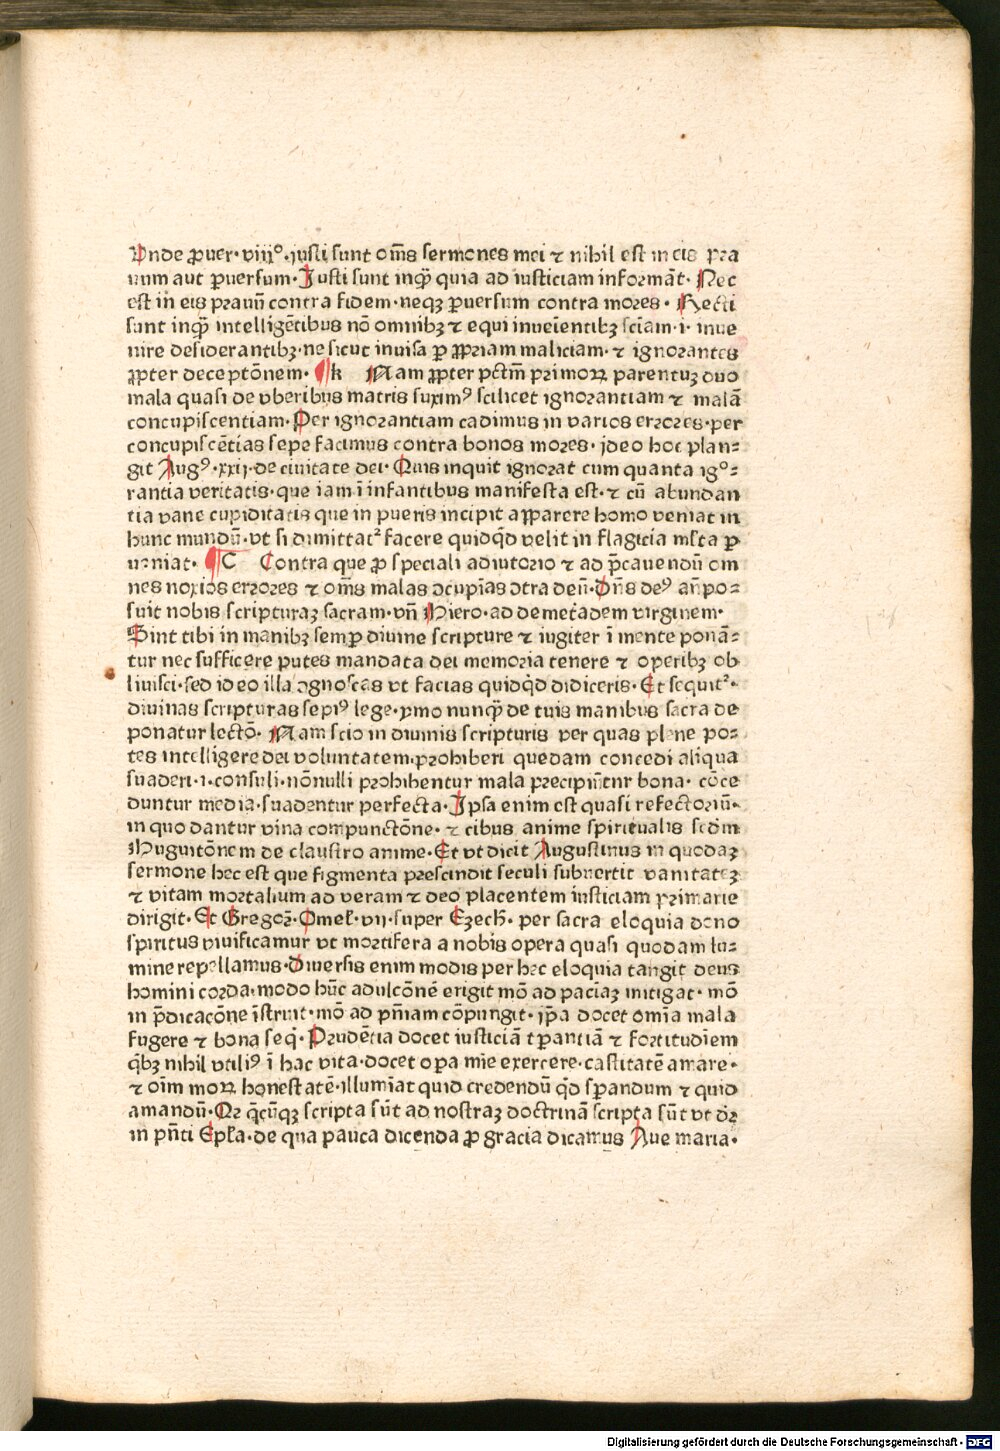 Vnde ꝓuer·viijº·iusti sunt om̄s sermones mei ⁊ nihil est in eis pra
uum aut ꝑuersum·Justi sunt inqͣꝫ quia ad iusticiam informāt· Nec
est in eis prauū contra fidem·neqꝫ ꝑuersum contra mores· Recti
sunt inqͣꝫ intelligētibus nō omnibꝫ ⁊ equi inueīentibꝫ sciam̄·i· inue
nire desiderantibꝫ·ne sicut inuisa ꝑ ꝓpriam maliciam· ⁊ ignorantes
ꝓpter deceptōnem· ¶k Nam ꝓpter pctm̄ primoꝝ parentuꝫ duo
mala quasi de vberibus matris suximꝰ scilicet ignorantiam ⁊ malā
concupiscentiam·Per ignorantiam cadimus in varios errores·per
concupiscētias sepe facimus contra bonos mores· ideo hoc plan⸗
git Augꝰ·xxij·de ciuitate dei· Quis inquit ignorat cum quanta igº⸗
rantia veritatis·que iam ī infantibus manifesta est·⁊ cū abundan
tia vane cupiditatis que in pueris incipit apparere homo veniat in
hunc mundū·vt si dimittat᷑ facere quidqd̄ velit in flagicia mlta ꝑ
ueniat· ¶C Contra que ꝓ speciali adiutorio ⁊ ad p̄cauendū om
nes noxios errores ⁊ om̄s malas ↄcupīas ↄtra deū·Dn̄s deꝰ an̄ po⸗
suit nobis scripturaꝫ sacram·vn̄ Hiero·ad demetadem virginem·
Sint tibi in manibꝫ semꝑ diuine scripture ⁊ iugiter ī mente ponā⸗
tur nec sufficere putes mandata dei memoria tenere ⁊ operibꝫ ob
liuisci·sed ideo illa ɔgnoscas vt facias quidqd̄ didiceris·Et sequit᷑·
diuinas scripturas sepiꝰ lege·ymo nunqͣꝫ de tuis manibus sacra de
ponatur lectō· Nam scio in diuinis scripturis per quas plene po⸗
tes intelligere dei voluntatem·prohiberi quedam concedi aliqua
suaderi·i·consuli·nōnulli prohibentur mala precipiūtur bona· cōce
duntur media·suadentur perfecta·Jpsa enim est quasi refectoriū·
in quo dantur vina compunctōne· ⁊ cibus anime spiritualis scdm̄
Huguitōnem de claustro anime·Et vt dicit Augustinus in quodaꝫ
sermone hec est que figmenta prescindit seculi subuertit vanitateꝫ
⁊ vitam mortalium ad veram ⁊ deo placentem iusticiam primarie
dirigit·Et Gregor̄·Omel̄·vij·super Ezech̄· per sacra eloquia dono
spiritus viuificamur vt mortifera a nobis opera quasi quodam lu⸗
mine repellamus·Diuersis enim modis per hec eloquia tangit deus
homini corda·modo hūc adulcōnē erigit mō ad pacīaꝫ mitigat· mō
in p̄dicacōne īstruit·mō ad pn̄iam cōpungit· ip̄a docet omīa mala
fugere ⁊ bona seq̄·Prudētia docet iusticiā tꝑantiā ⁊ fortitudīem
qb̄ꝫ nihil vtiliꝰ ī hac vita·docet oꝑa mīe exercere·castitatē amare·
⁊ oīm moꝝ honestatē·illumīat quid credendū qd̄ sꝑandum ⁊ quid
amandū·Qꝛ q̄cūqꝫ scripta sūt ad nostraꝫ doctrinā scripta sūt vt dr̄
in pn̄ti Epl̄a·de qua pauca dicenda ꝓ gracia dicamus Aue maria·
Digitalisierung gefördert durch die Deutsche Forschungsgemeinschaft - DFG